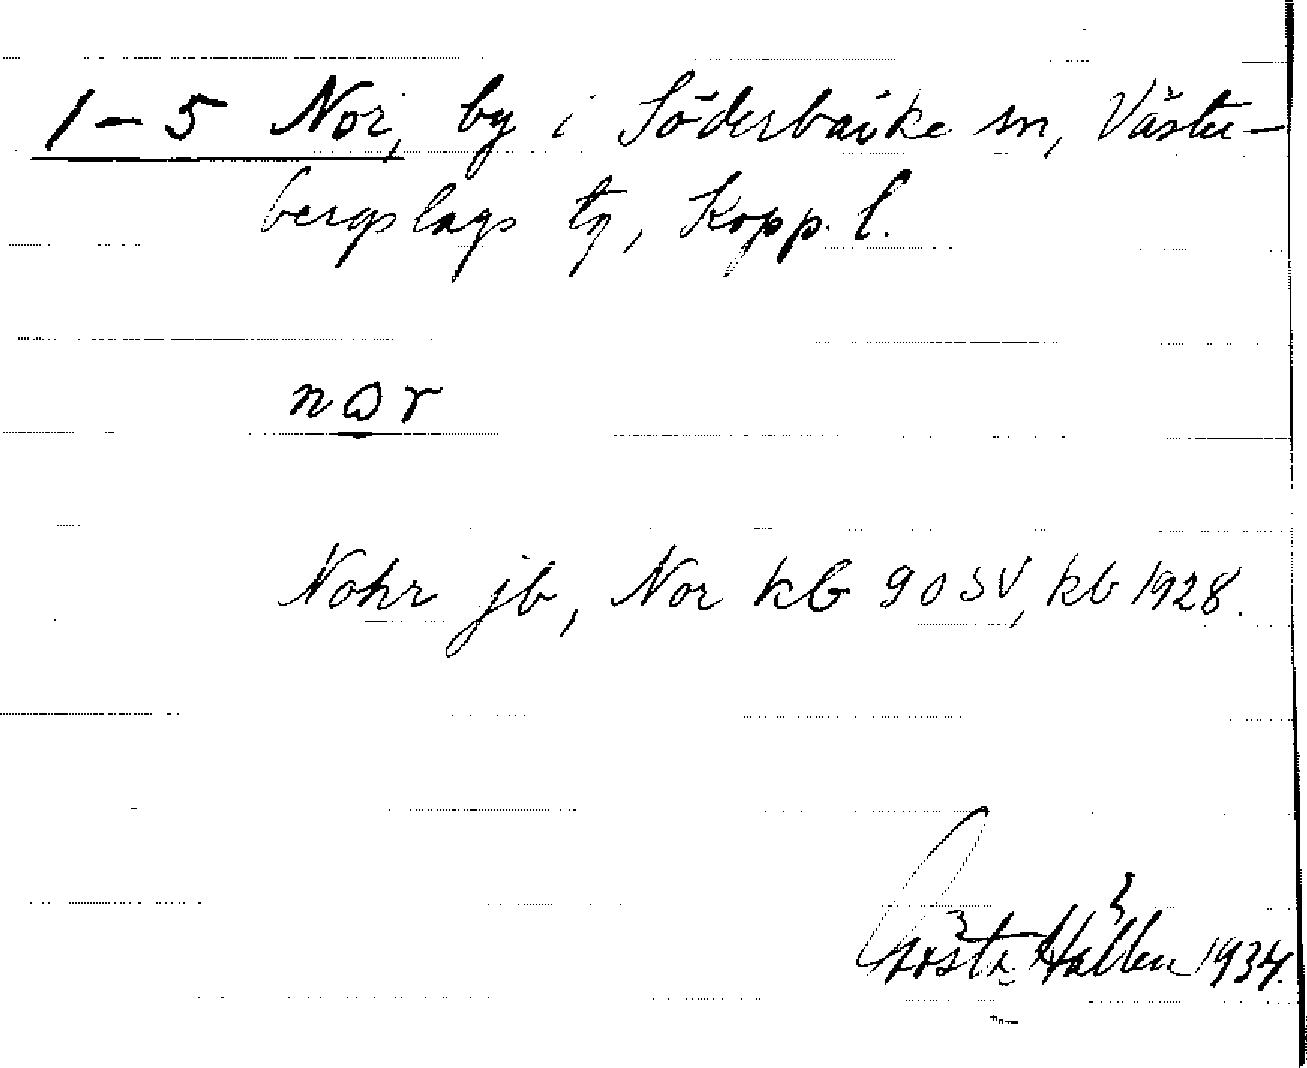 1-5 Nor, by i Söderbärke sn, Väster-
bergslags tg, Kopp. l.
nɷr
Nohr jb, Nor kb 90 SV, kb 1928.
Gösta Hallen 1934.